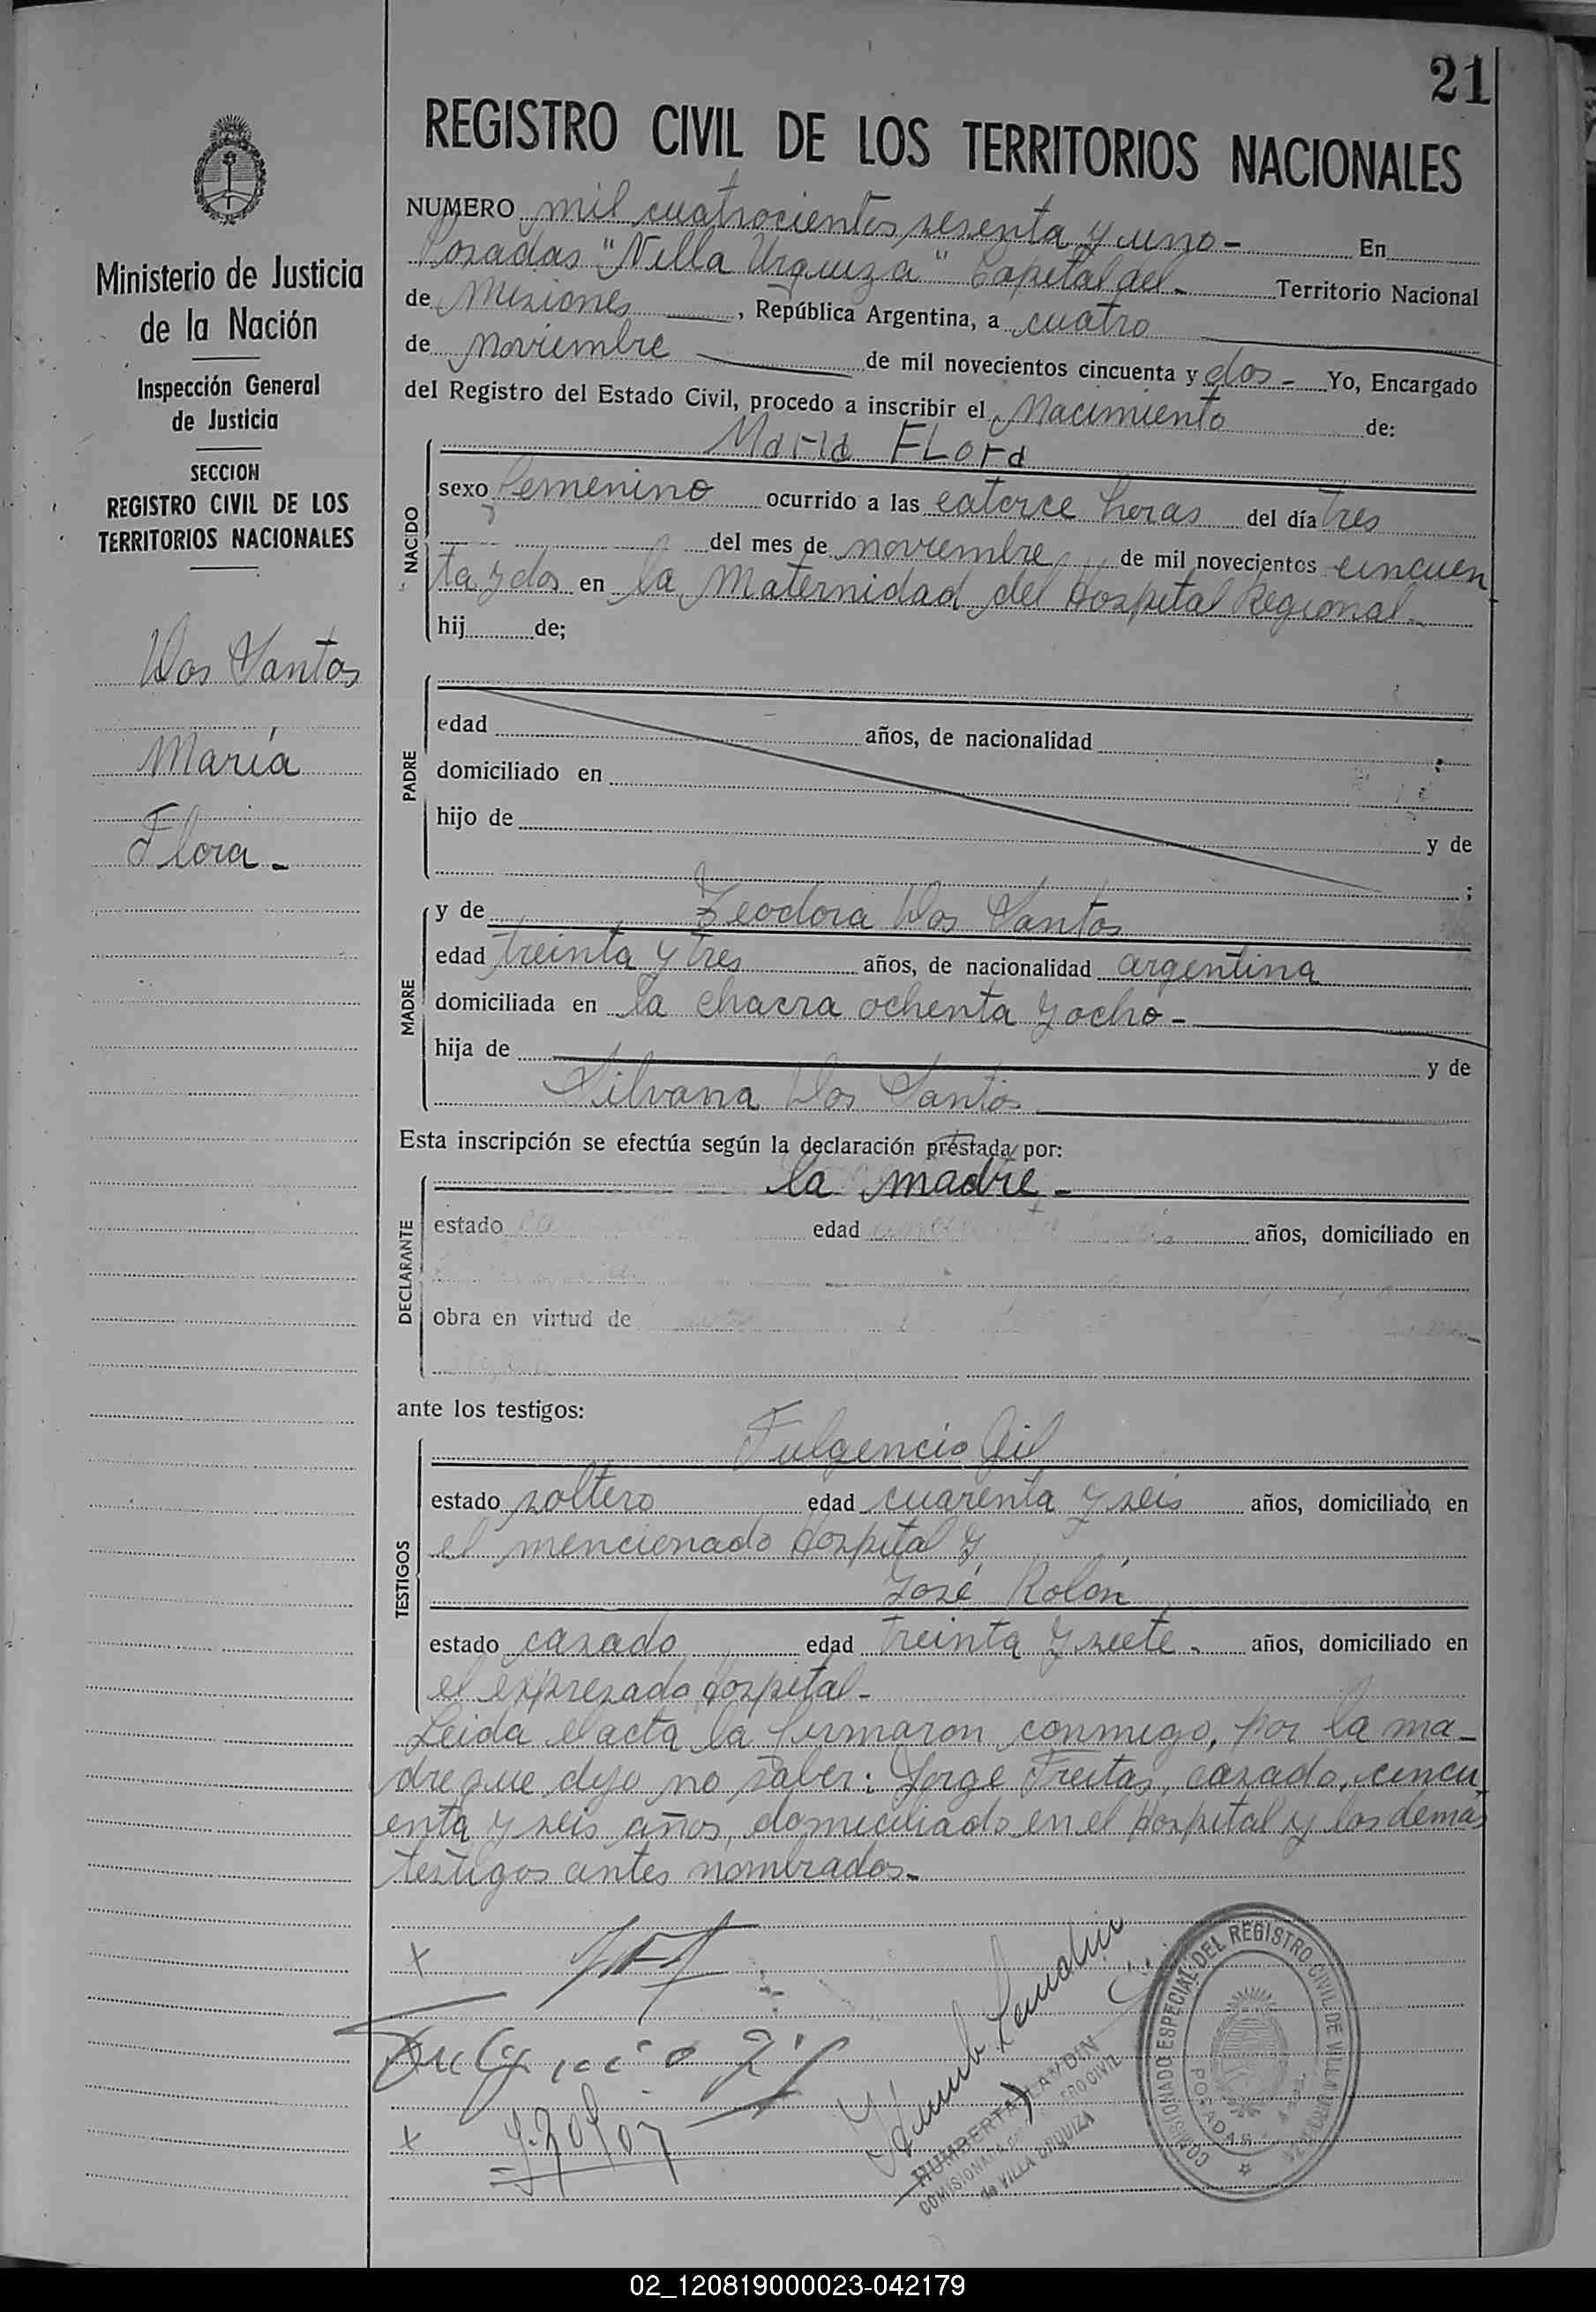 21
REGISTRO CIVIL DE LOS TERRITORIOS NACIONALES
Ministerio de Justicia
de la Nación
Inspección General
de Justicia
SECCION
REGISTRO CIVIL DE LOS
TERRITORIOS NACIONALES
Dos Santos
María
Flora -
NUMERO mil cuatrocientos sesenta y uno - En
Posadas "Villa Urquiza" Capital del - Territorio Nacional
de Misiones , República Argentina, a cuatro
de noviembre de mil novecientos cincuenta y dos - Yo, Encargado
del Registro del Estado Civil, procedo a inscribir el Nacimiento de:
María FLora
NACIDO
sexo femenino ocurrido a las catorce horas del día tres
del mes de noviembre de mil novecientos cincuen
ta y dos en la Maternidad del Hospital Regional -
hij de;
PADRE
edad años, de nacionalidad
domiciliado en
hijo de y de
;
MADRE
y de Teodora Dos Santos
edad treinta y tres años, de nacionalidad argentina
domiciliada en la chacra ochenta y ocho -
hija de y de
Silvana Dos Santos
Esta inscripción se efectúa según la declaración prestada por:
la madre -
DECLARANTE
estado edad años, domiciliado en
obra en virtud de
ante los testigos:
Fulgencio Gil
TESTIGOS
estado soltero edad cuarenta y seis años, domiciliado en
el mencionado Hospital y
José Rolón
estado casado edad treinta y siete - años, domiciliado en
el expresado Hospital -
Leida el acta la firmaron conmigo, por la ma-
dre que dijo no saber: Jorge Freitas, casado, cincu
enta y seis años, domiciliado en el Hospital y los demás
testigos antes nombrados -
Fulgencio Gil
HUMBERTO LANDIN
COMISIONADO REGISTRO CIVIL
de VILLA URQUIZA
COMISIONADO ESPECIAL DEL REGISTRO CIVIL DE VILLA URQUIZA
POSADAS
02_120819000023-042179